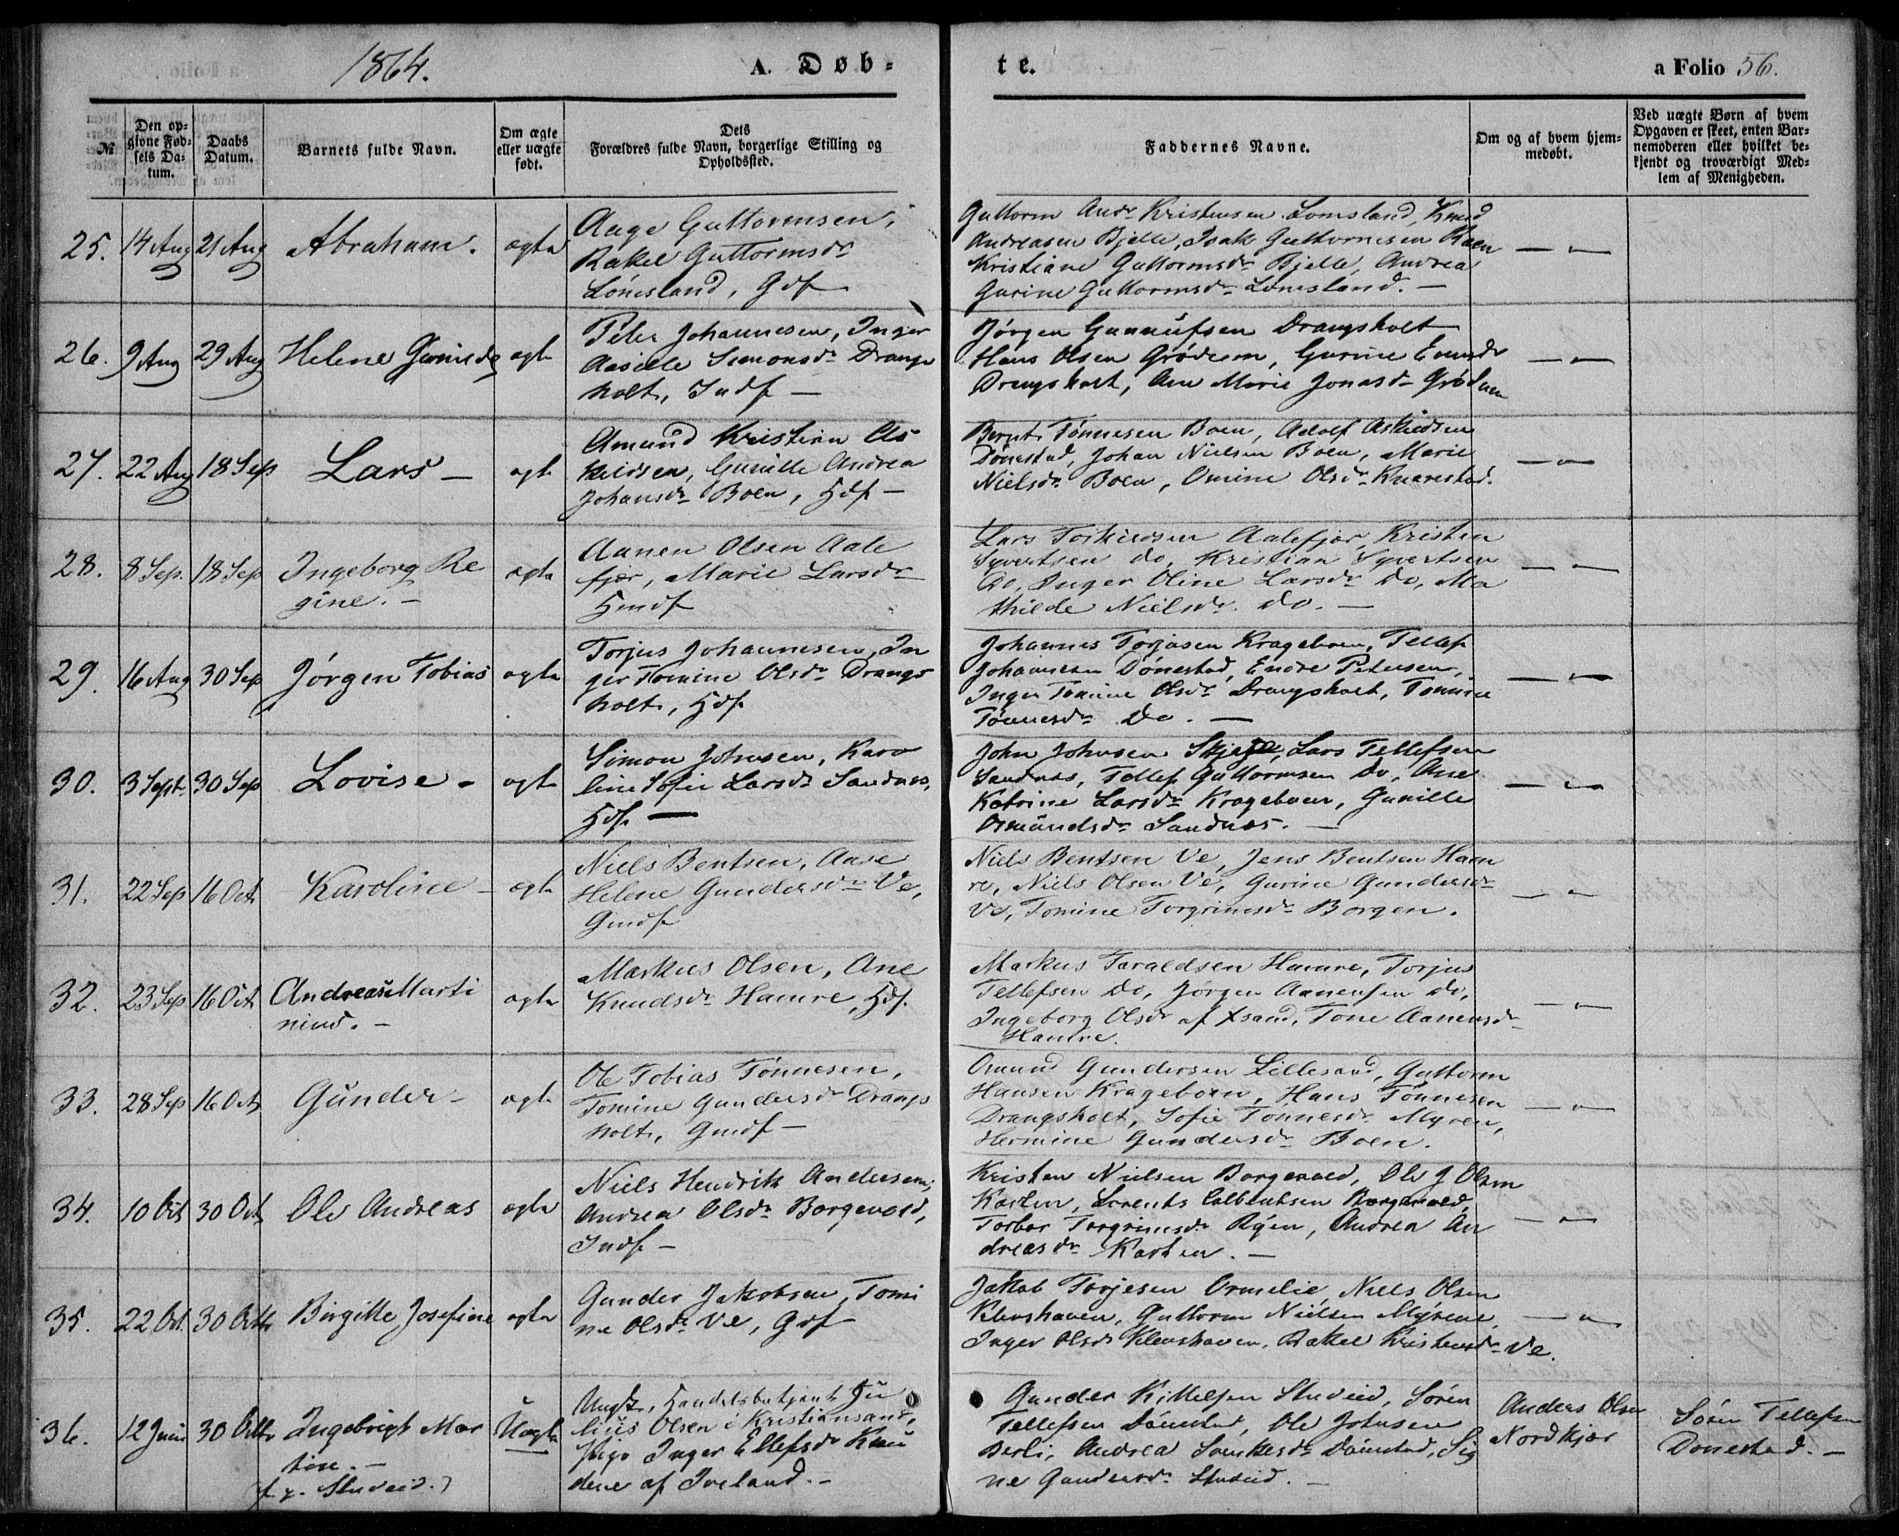 1864.
A. Døb-
te.
a Folio 56.
№
Den op-
givne Fød-
sels Da-
tum.
Daabs
Datum.
Barnets fulde Navn.
Om ægte
eller uægte
født.
Dets
Forældres fulde Navn, borgerlige Stilling og
Opholdssted.
Faddernes Navne.
Om og af hvem hjem-
medøbt.
Ved uægte Børn af hvem
Opgaven er skeet, enten Bar-
nemoderen eller hvilket be-
kjendt og troværdigt Med-
lem af Menigheden.
25. 14 Aug 21 Aug Abraham. ægte
Aage Guttormsen,
Rakel Guttormsdr
Lömsland, Gdf
Guttorm Andr Kristensen Lomsland, Knud
Andreasen Bjelle, Isak Guttormsen
Kristiane Guttormsdr Bjelle, Andrea
Gurine Guttormsdr Lomsland. —
26. 9 Aug 29 Aug Helene ægte
Peter Johannesen, Inger
Simonsdr Drangs
holt, Indf —
Jørgen Gunnufsen Drangsholt
Hans Olsen Grødum, Gurine
Drangsholt, Ane Marie Jonasdr
27. 22 Aug 18 Sep Lars — ægte
Amund Kristian As
kildsen, Gunille Andrea
Johansdr Boen, Hdf —
Bernt Tønnesen Boen, Adolf Askildsen
Dönestad, Johan Nielsen Boen, Marie
Nielsdr Boen, Omine Olsdr Knarestad.
28. 8 Sep. 18 Sep Ingeborg Re
gine. — ægte
Aanen Olsen Aale
fjær, Marie Larsdr
Gmdf
Lars Torkildsen Aalefjær, Kristen
Syvertsen do, Kristian Syvertsen
Do, Inger Oline Larsdr Do, Ma
thilde Nielsdr. do. —
29. 16 Aug 30 Sep Jørgen Tobias ægte
Torjus Johannesen, In
ger Tomine Olsdr Drangs
holt, Hdf
Johannes Torjusen Krageboen, Tellef
Johansen Dönestad, Endre Petersen,
Inger Tomine Olsdr Drangsholt, Tomine
Tönnesdr Do. —
30. 3 Sept. 30 Sep Lovise — ægte
Simon Johnsen, Karo
line Sofie Larsdr Sandnæs,
Hdf —
John Johnsen, Lars Tellefsen
Sandnæs, Tellef Guttormsen Do, Ane
Katrine Larsdr Krageboen, Gunille
Osmundsdr Sandnæs. —
31. 22 Sep 16 Oct Karoline — ægte
Niels Bentsen, Aase
Helene Gundersdr Ve,
Gmdf
Niels Bentsen Ve, Jens Bentsen Ham
re, Niels Olsen Ve, Gurine Gundersdr
Ve, Tomine Torgrimsdr Borgen.
32. 23 Sep 16 Oct Andreas Marti
nius. — ægte
Markus Olsen, Ane
Knudsdr Hamre, Hdf.
Markus Taraldsen Hamre, Torjus
Tellefsen Do, Jørgen Aanensen do,
Ingeborg Olsdr af Xsand, Tone Aanensdr
Hamre.
33. 28 Sep 16 Oct Gunder — ægte
Ole Tobias Tönnesen,
Tomine Gundersdr Drangs
holt, Gmdf —
Osmund Gundersen Lillesand, Guttorm
Hansen Krageboen, Hans Tönnesen
Drangsholt, Sofie Tönnesdr Myren,
Hermine Gundersdr Boen.
34. 10 Oct 30 Oct Ole Andreas ægte
Niels Hendrik Andersen,
Andrea Olsdr Borgevold,
Indf —
Kristen Nielsen Borgevold, Ole J Olsen
Karten, Lorents Borgevold,
Torbor Torgrimsdr Ryen, Andrea An
dreasdr Karten. —
35. 22 Oct. 30 Octbr Birgitte Josefine ægte
Gunder Jakobsen, Tomi
ne Olsdr Ve, Gdf
Jakob Torjesen Ormelie, Niels Olsen
Kleushaven, Guttorm Nielsen Myrene,
Inger Olsdr Kleushaven, Rakel Kristensdr Ve.
36. 12 Juni 30 Octbr Ingebrigt Mar
tin. —
Stuveid.) Uægte
Ungk., Handelsbetjent Ju
lius Olsen i Kristiansand,
Pige Inger Ellefsdr
af Iveland. —
Gunder Kittelsen Stuveid, Sören
Tellefsen Dönestad, Ole Johnsen
Berli, Andrea Dönestad, Sig
ne Gundersdr Stuveid. —
Anders Olsen
Nordkjær
Sören Tellefsen
Donestad. —